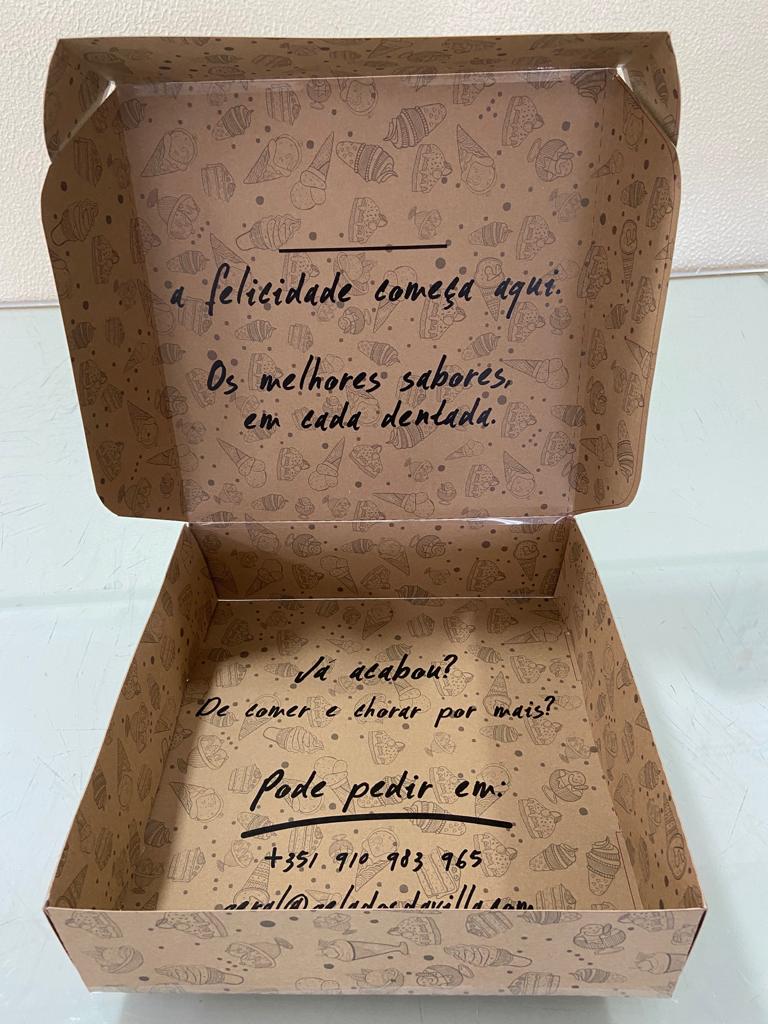 a felicidade começa aqui.
Os melhores sabores,
em cada dentada.
Já acabou?
De comer e chorar por mais?
Pode pedir em:
+351 910 983 965
geral@geladosdavilla.com